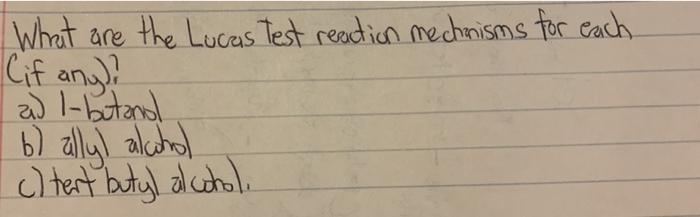 What are the Lucas Test reaction mechanisms for each
(if any)?
a) 1-butanol
b) allyl alcohol
c) tert butyl alcohol.